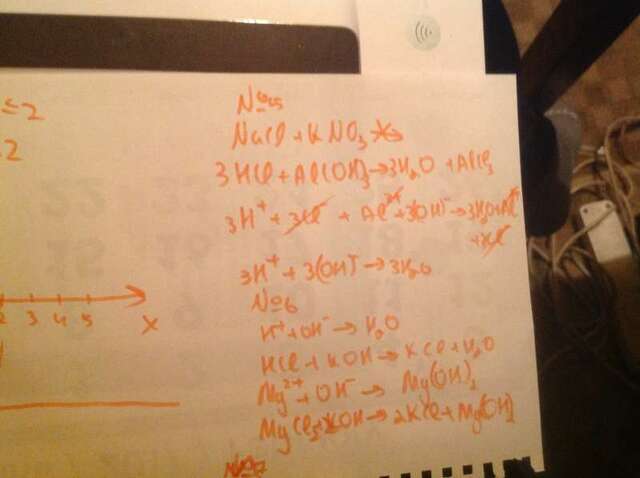 ≤2
2
№5
NaCl + KNO₃ ↛
3HCl + Al(OH)₃ → 3H₂O + AlCl₃
3H⁺ + 3Cl⁻ + Al³⁺ + 3(OH)⁻ → 3H₂O + Al
+ 3Cl⁻
3H⁺ + 3(OH)⁻ → 3H₂O
№6
H⁺ + OH⁻ → H₂O
HCl + KOH → KCl + H₂O
Mg²⁺ + OH⁻ → Mg(OH)₂
MgCl₂ + 2KOH → 2KCl + Mg(OH)₂
2 3 4 5
x